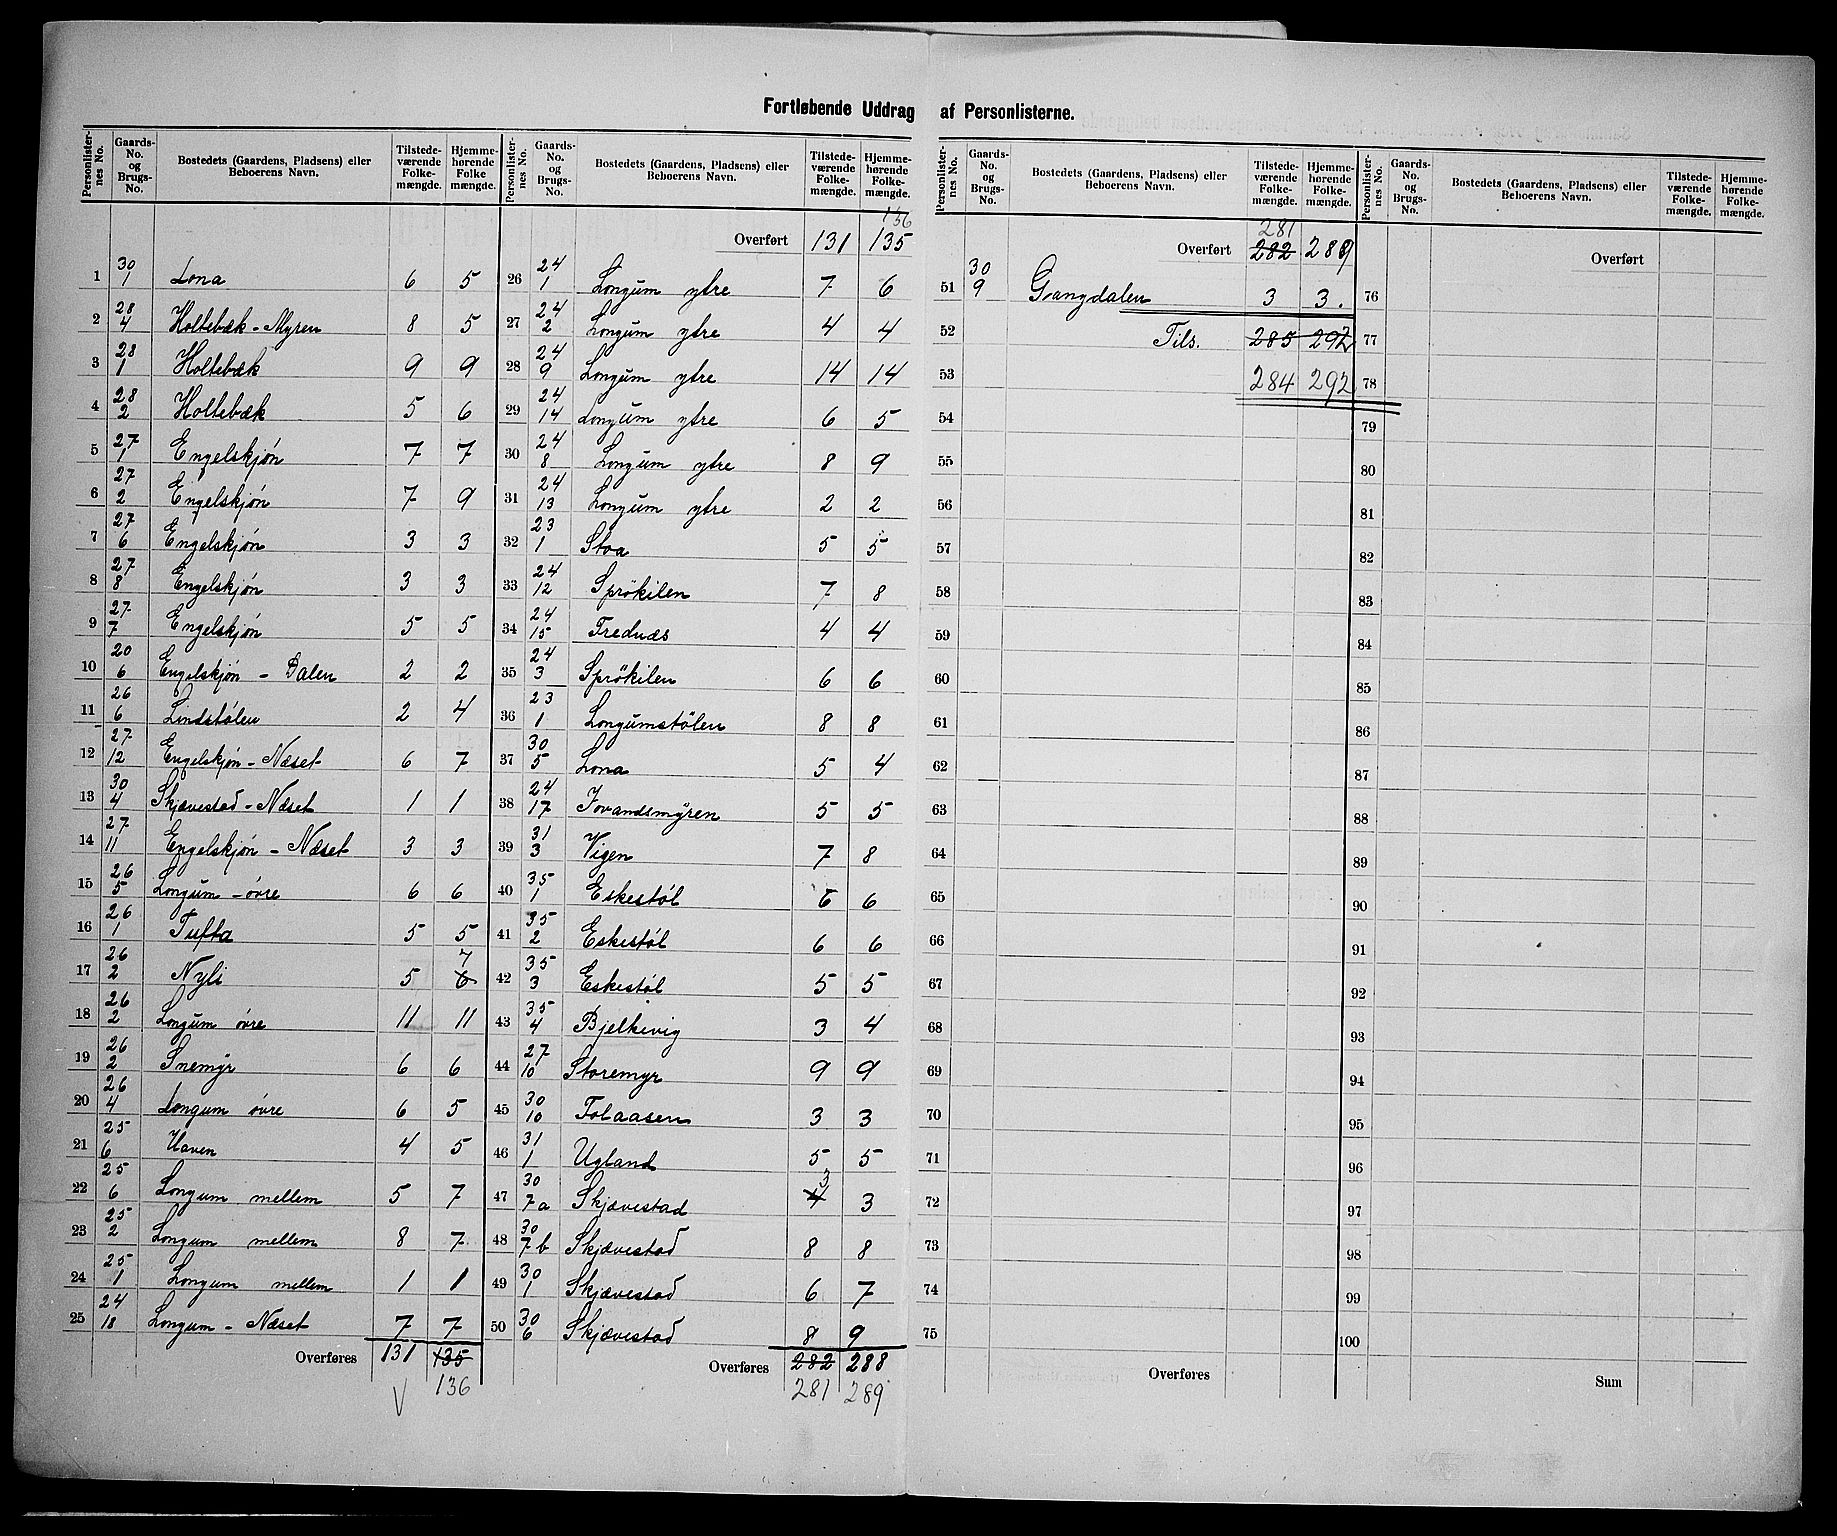 Fortløbende Uddrag af Personlisterne.
Personlister- nes No. | Gaards- No. og Brugs- No. | Bostedets (Gaardens, Pladsens) eller Beboerens Navn. | Tilstede- værende Folke- mængde. | Hjemme- hørende Folke mængde.
1 30/1 Lona 6 5
2 28/4 Holtebæk - Myren 8 5
3 28/1 Holtebæk 9 9
4 28/2 Holtebæk 5 6
5 27/1 Engelskjøn 7 7
6 27/2 Engelskjøn 7 9
7 27/6 Engelskjøn 3 3
8 27/8 Engelskjøn 3 3
9 27/7 Engelskjøn 5 5
10 20/6 Engelskjøn - Dalen 2 2
11 26/6 Lindstølen 2 4
12 27/12 Engelskjøn - Næset 6 7
13 30/4 Skjævestad - Næset 1 1
14 27/11 Engelskjøn - Næset 3 3
15 26/5 Longum - øvre 6 6
16 26/1 Tufta 5 5
17 26/2 Nyli 5 6 7
18 26/2 Longum øvre 11 11
19 26/2 Snemyr 6 6
20 26/4 Longum øvre 6 5
21 25/6 Haven 4 5
22 25/6 Longum mellem 5 7
23 25/2 Longum mellem 8 7
24 25/1 Longum mellem 1 1
25 24/18 Longum - Næset 7 7
Overføres 131 135
136
Personlister- nes No. | Gaards- No. og Brugs- No. | Bostedets (Gaardens, Pladsens) eller Beboerens Navn. | Tilstede- værende Folke- mængde. | Hjemme- hørende Folke- mængde.
136
Overført 131 135
26 24/1 Longum ytre 7 6
27 24/2 Longum ytre 4 4
28 24/9 Longum ytre 14 14
29 24/14 Longum ytre 6 5
30 24/8 Longum ytre 8 9
31 24/13 Longum ytre 2 2
32 23/1 Stoa 5 5
33 24/12 Sprökilen 7 8
34 24/15 Trednæs 4 4
35 24/3 Sprökilen 6 6
36 23/1 Longumstölen 8 8
37 30/5 Lona 5 4
38 24/17 Jovandsmyren 5 5
39 31/3 Vigen 7 8
40 35/1 Eskestøl 6 6
41 35/2 Eskestøl 6 6
42 35/3 Eskestøl 5 5
43 35/4 Bjelkivig 3 4
44 27/10 Storemyr 9 9
45 30/10 Folaasen 3 3
46 31/1 Ugland 5 5
47 30/7a Skjævestad 4 3 3
48 30/7b Skjævestad 8 8
49 30/1 Skjævestad 6 7
50 30/6 Skjævestad 8 9
Overføres 282 288
281 289
Personlister- nes No. | Gaards- No. og Brugs- No. | Bostedets (Gaardens, Pladsens) eller Beboerens Navn. | Tilstede- værende Folke- mængde. | Hjemme- hørende Folke- mængde.
281
Overført 282 289
51 30/9 Gangdalen 3 3.
52 Tils. 285 292
53 284 292
54
55
56
57
58
59
60
61
62
63
64
65
66
67
68
69
70
71
72
73
74
75
Overføres
Personlister- nes No. | Gaards- No. og Brugs- No. | Bostedets (Gaardens, Pladsens) eller Beboerens Navn. | Tilstede- værende Folke- mængde. | Hjemme- hørende Folke- mængde.
Overført
76
77
78
79
80
81
82
83
84
85
86
87
88
89
90
91
92
93
94
95
96
97
98
99
100
Sum